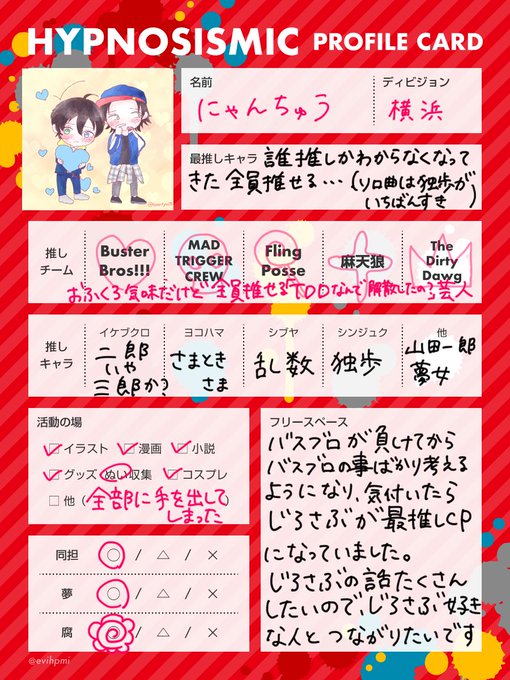 HYPNOSISMIC PROFILE CARD
名前
にゃんちゅう
ディビジョン
横浜
最推しキャラ
誰推しかわからなくなって
きた 全員推せる…(ソロ曲は独歩が
いちばんすき)
推し
チーム
Buster
Bros!!!
MAD
TRIGGER
CREW
Fling
Posse
麻天狼
The
Dirty
Dawg
おふくろ気味だけど全員推せるTDDなんで解散したの?芸人
推し
キャラ
イケブクロ
二郎
いや
三郎か?
ヨコハマ
さまとき
さま
シブヤ
乱数
シンジュク
独歩
他
山田一郎
夢女
活動の場
イラスト 漫画 小説
グッズ ぬい収集 コスプレ
他(全部に手を出して
しまった)
同担 ○ / △ / ×
夢 ○ / △ / ×
腐 ○ / △ / ×
フリースペース
バスブロが負けてから
バスブロの事ばかり考える
ようになり、気付いたら
じろさぶが最推しCP
になっていました。
じろさぶの話たくさん
したいので、じろさぶ好き
な人とつながりたいです
@evihpmi